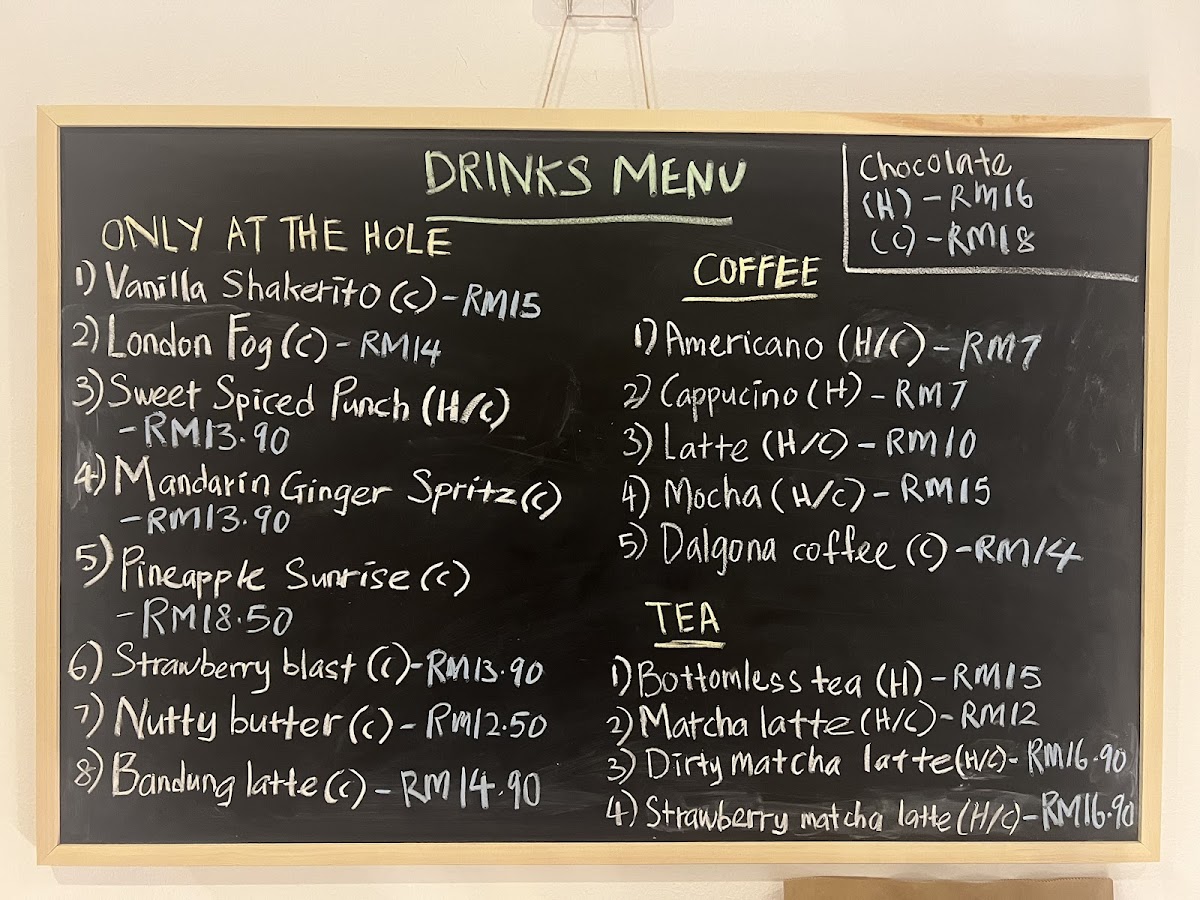 DRINKS MENU
ONLY AT THE HOLE
1) Vanilla Shakerito (C) - RM15
2) London Fog (C) - RM14
3) Sweet Spiced Punch (H/C)
- RM13.90
4) Mandarin Ginger Spritz (C)
- RM13.90
5) Pineapple Sunrise (C)
- RM18.50
6) Strawberry blast (C) - RM13.90
7) Nutty butter (C) - RM12.50
8) Bandung latte (C) - RM14.90
Chocolate
(H) - RM16
(C) - RM18
COFFEE
1) Americano (H/C) - RM7
2) Cappucino (H) - RM7
3) Latte (H/C) - RM10
4) Mocha (H/C) - RM15
5) Dalgona coffee (C) - RM14
TEA
1) Bottomless tea (H) - RM15
2) Matcha latte (H/C) - RM12
3) Dirty matcha latte (H/C) - RM16.90
4) Strawberry matcha latte (H/C) - RM16.90